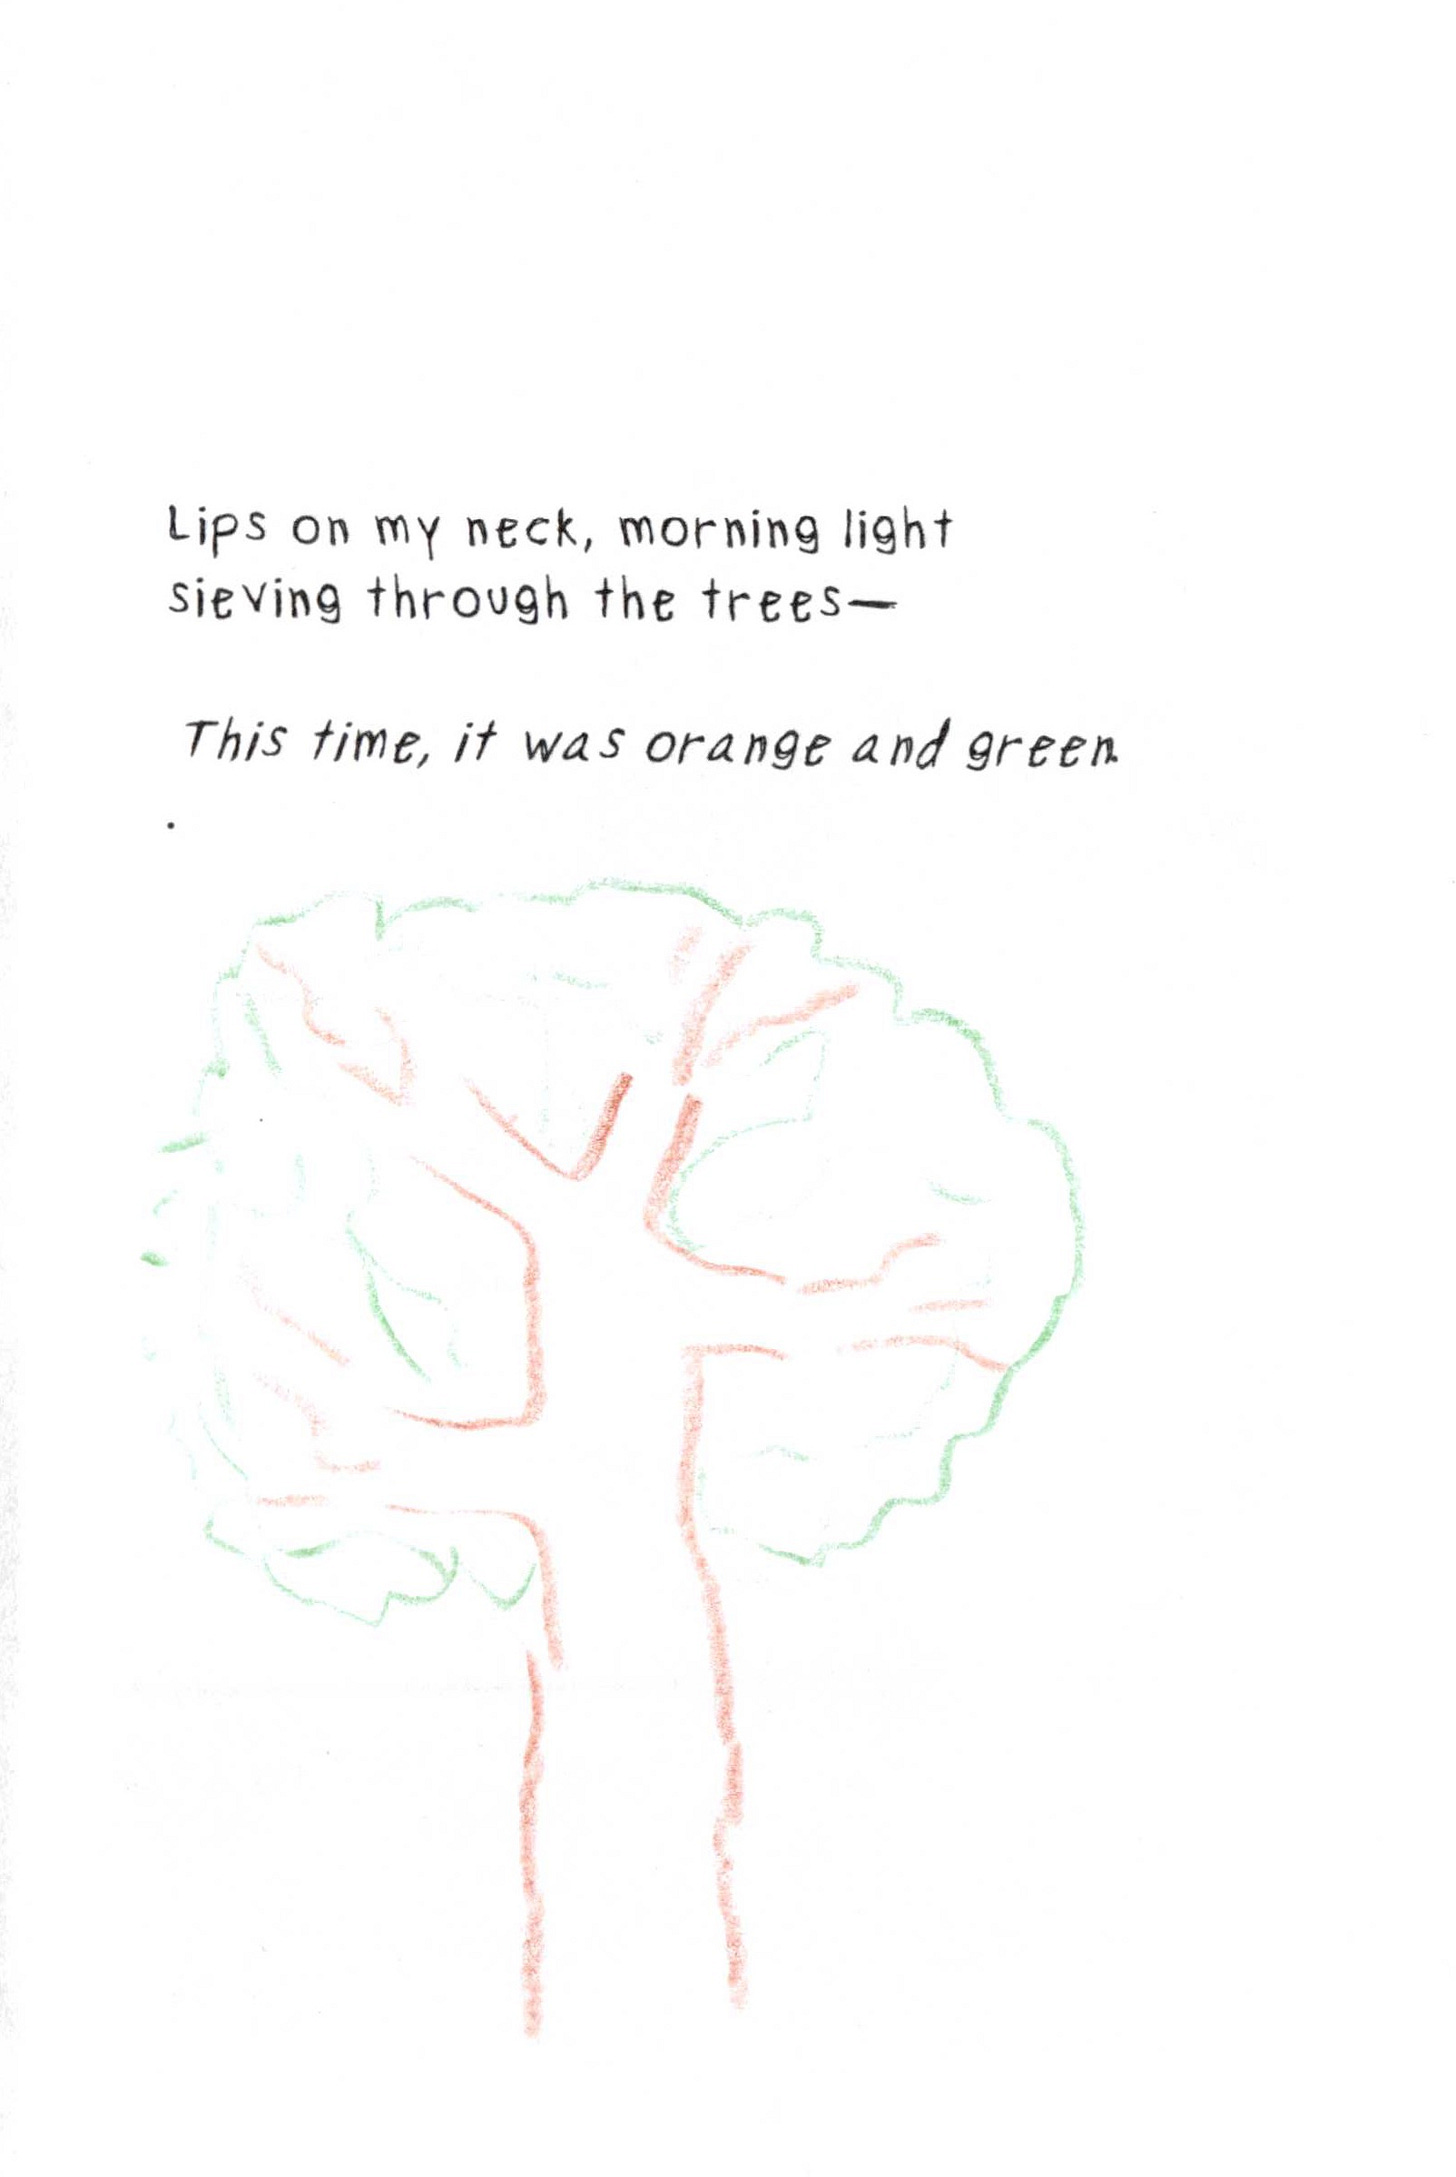 Lips on my neck, morning light
sieving through the trees—
This time, it was orange and green.